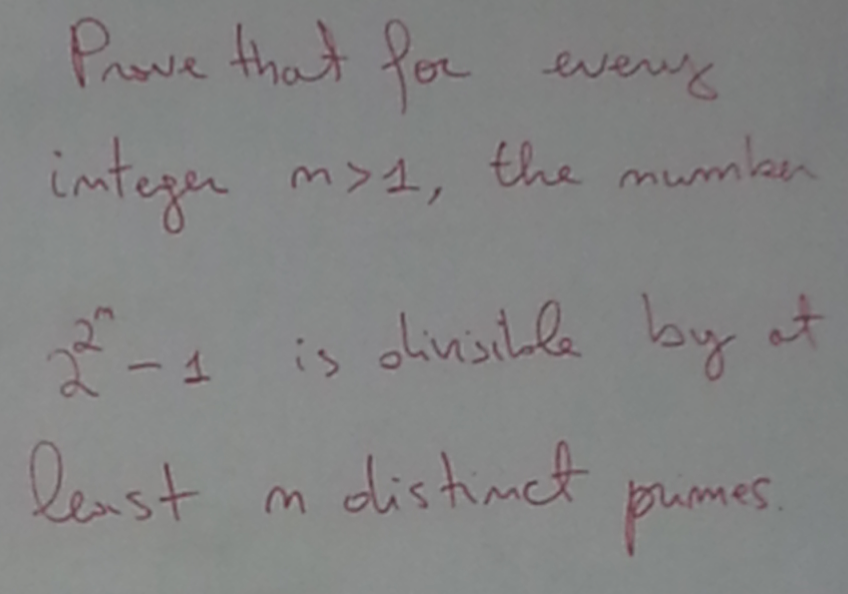 Prove that for every
integer n>1, the number
2^{2^n} - 1 is divisible by at
least n distinct primes.